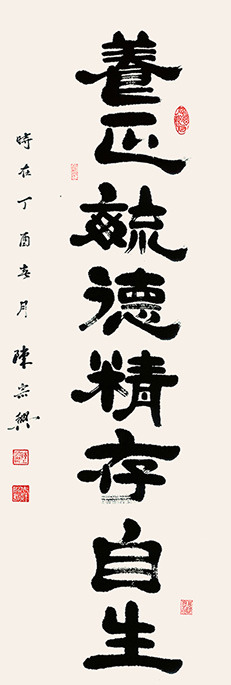 養正毓德精存自生
時在丁酉春月陳宗興